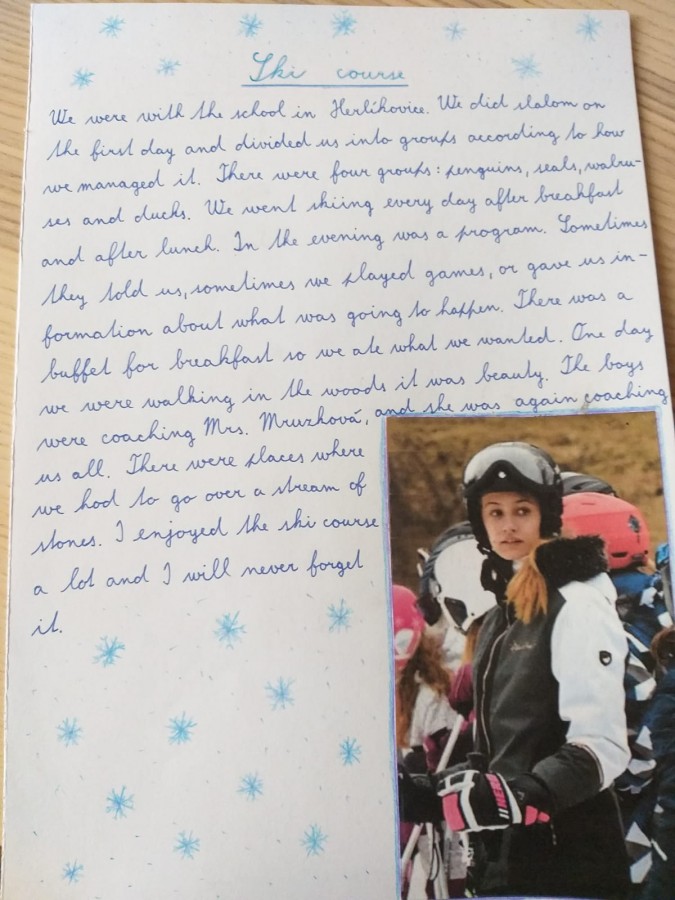 Ski course
We were with the school in Herlíkovice. We did slalom on
the first day and divided us into groups according to how
we managed it. There were four groups: penguins, seals, walru-
ses and ducks. We went skiing every day after breakfast
and after lunch. In the evening was a program. Sometimes
they told us, sometimes we played games, or gave us in-
formation about what was going to happen. There was a
buffet for breakfast so we ate what we wanted. One day
we were walking in the woods it was beauty. The boys
were coaching Mrs. Mruzková, and she was again coaching
us all. There were places where
we had to go over a stream of
stones. I enjoyed the ski course
a lot and I will never forget
it.